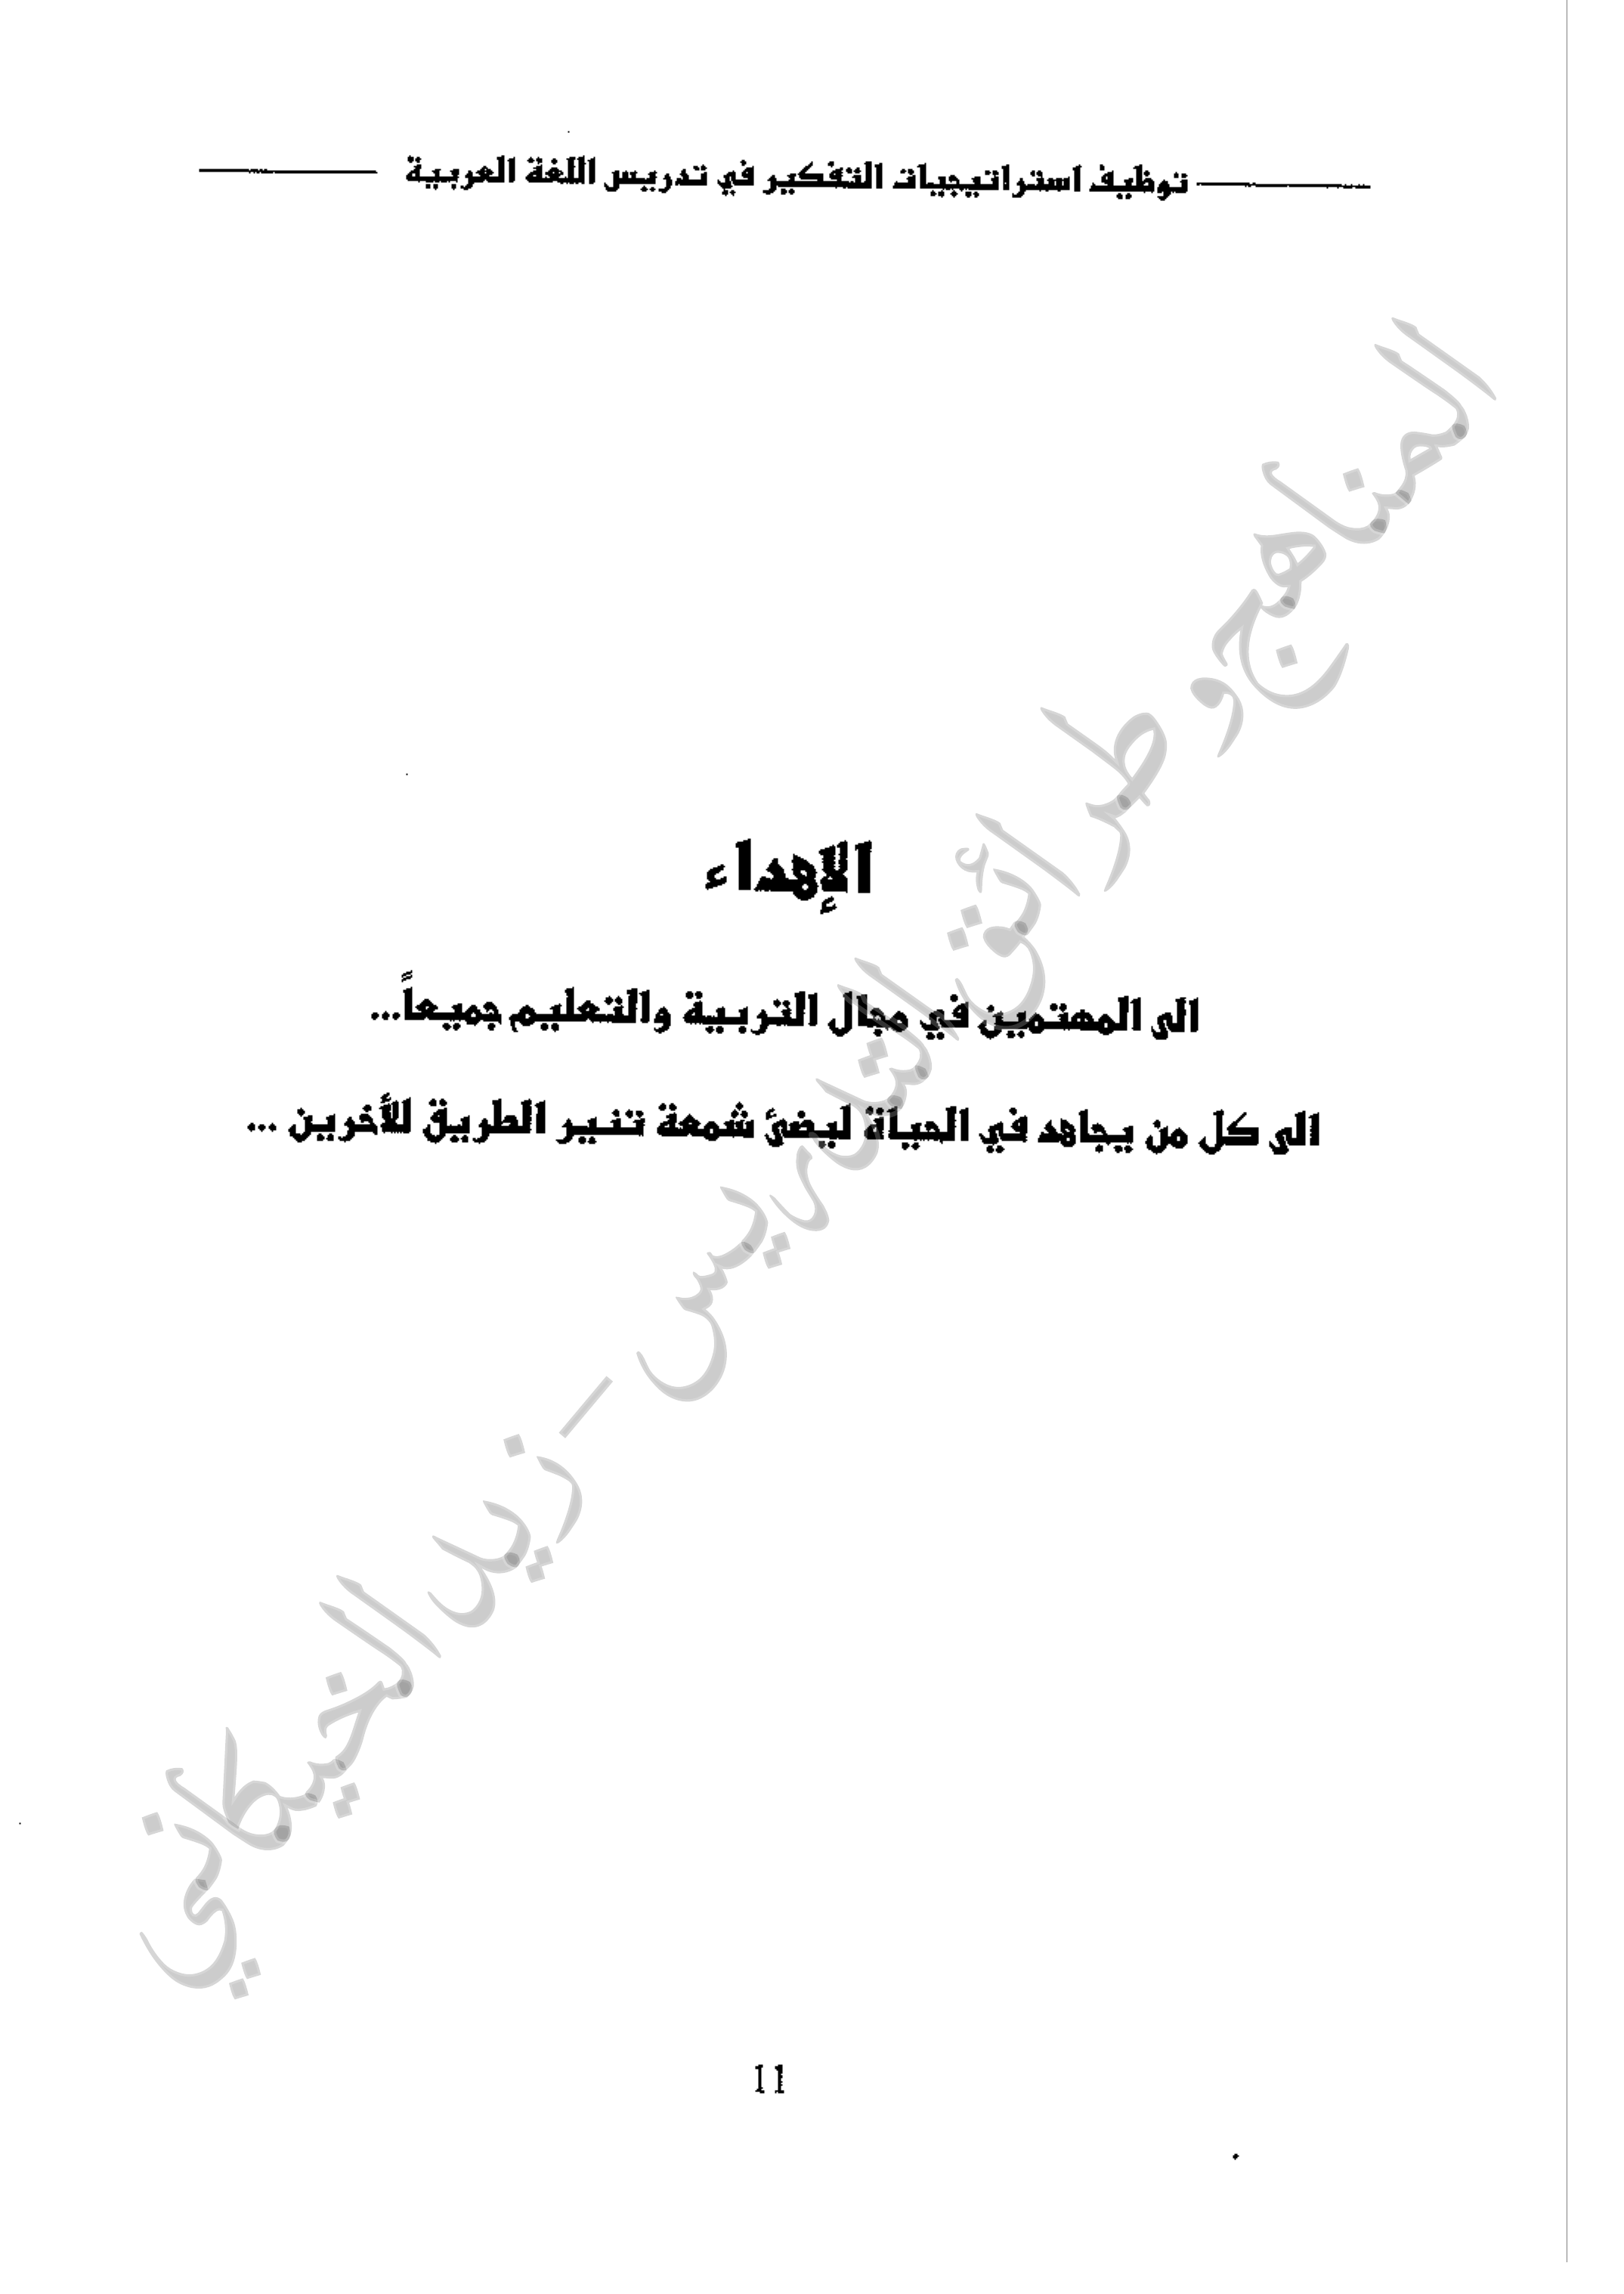 توظيف استراتيجيات التفكير في تدريس اللغة العربية
الإهداء
الى المهتمين في مجال التربية والتعليم جميعاً...
الى كل من يجاهد في الحياة ليضئ شمعة تنير الطريق للأخرين ...
المناهج وطرائق التدريس - زيد الخيكاني
11